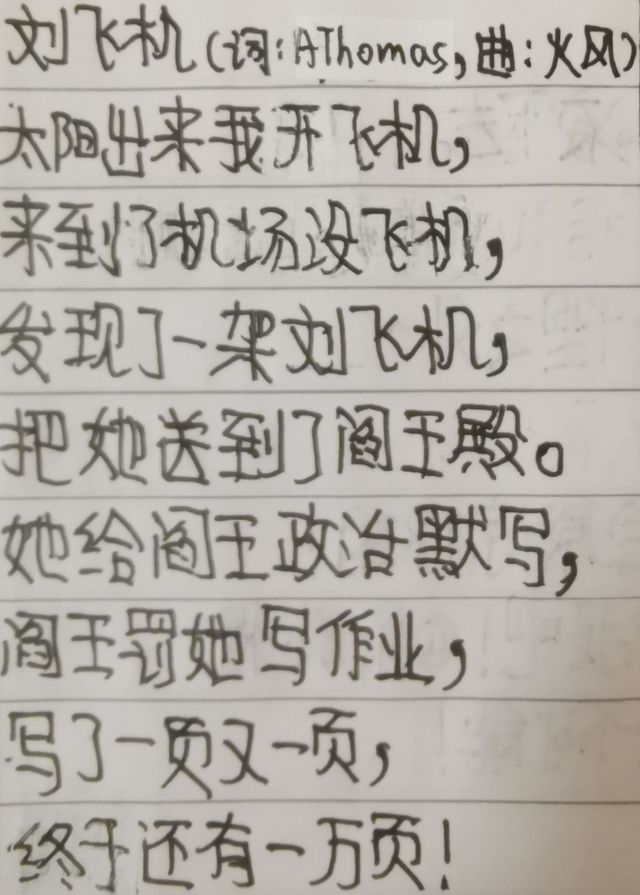 刘飞机(词:AThomas,曲:火风)
太阳出来我开飞机,
来到了机场没飞机,
发现了一架刘飞机,
把她送到了阎王殿。
她给阎王政治默写,
阎王罚她写作业,
写了一页又一页,
终于还有一万页!